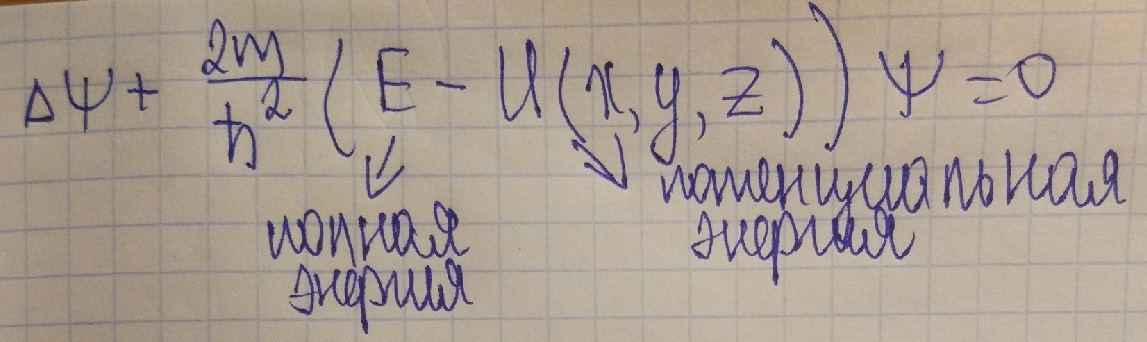 Δψ + 2m/ħ² (E − U(x, y, z)) ψ = 0
полная
энергия
потенциальная
энергия